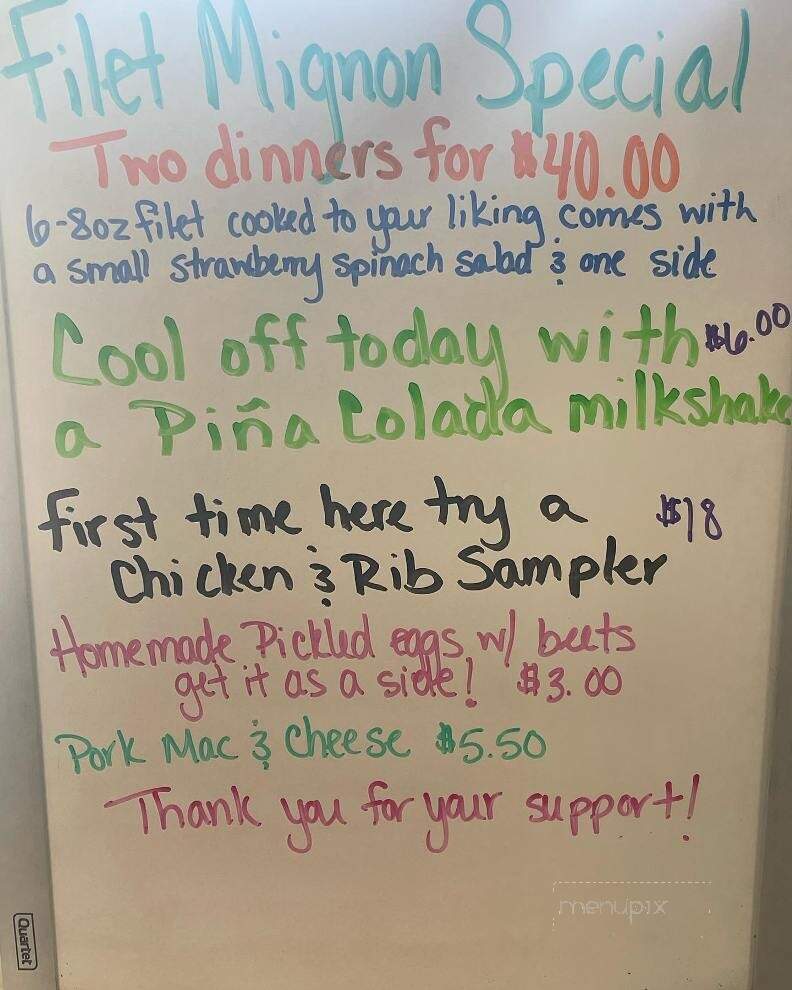 Filet Mignon Special
Two dinners for $40.00
6-8oz filet cooked to your liking comes with
a small strawberry spinach salad & one side
Cool off today with $6.00
a Piña Colada milkshake
First time here try a $18
Chicken & Rib Sampler
Homemade Pickled eggs w/ beets
get it as a side! $3.00
Pork Mac & Cheese $5.50
Thank you for your support!
menupix
Quartet